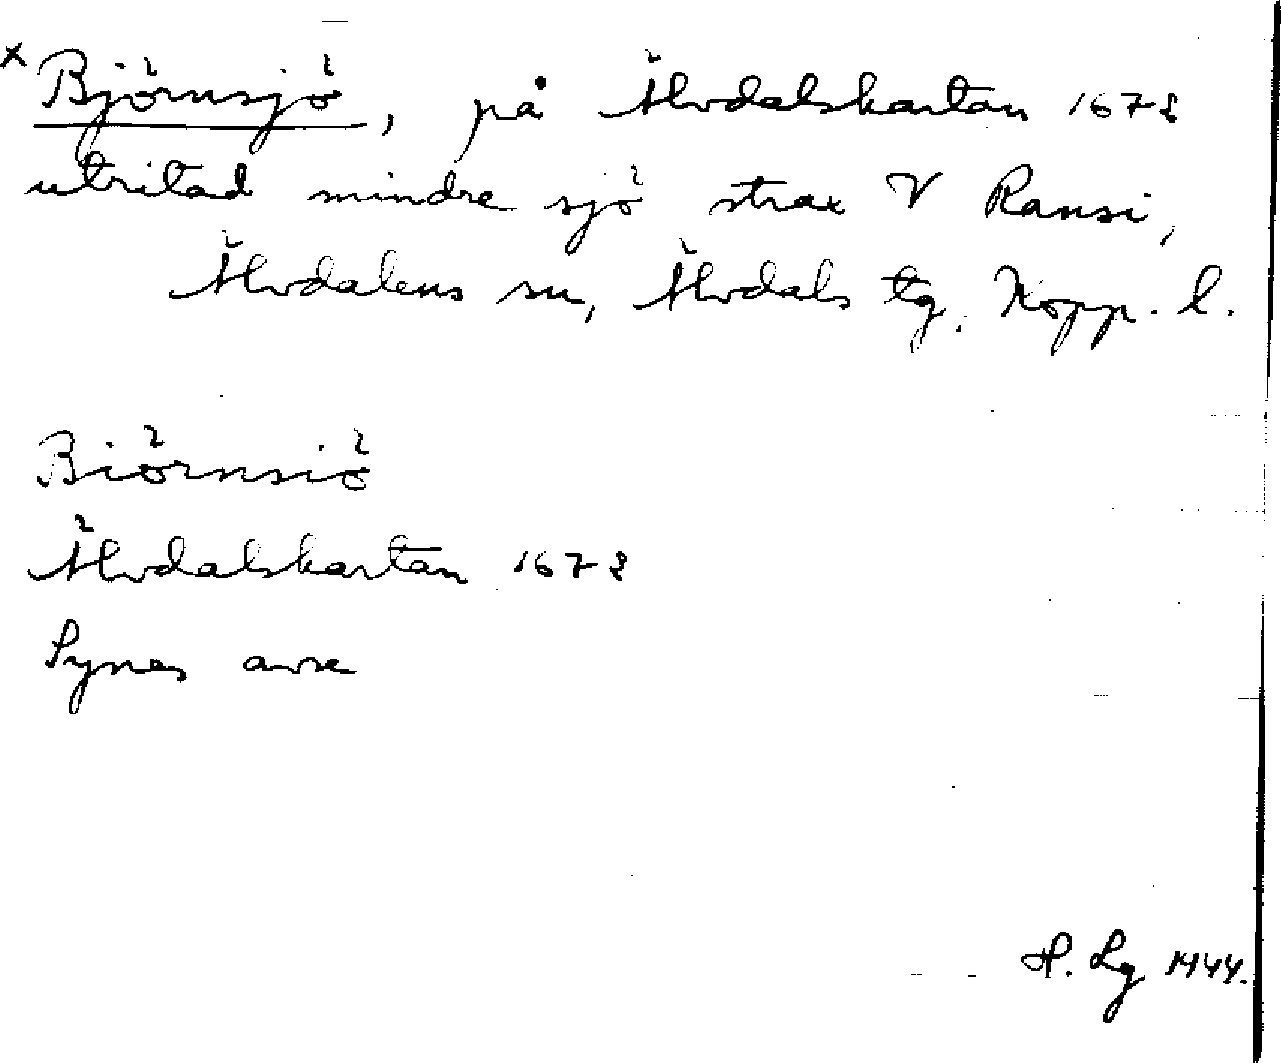 x Björnsjö, på Älvdalskartan 1672
utritad mindre sjö strax V Ransi,
Älvdalens sn, Älvdals tg. Kopp. l.
Biörnsiö
Älvdalskartan 1672
Synes avse
H. Lg 1944.